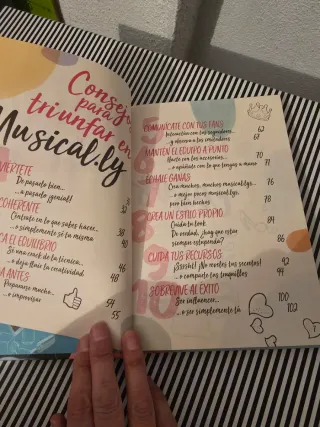 Consejo
para
triunfar en
Musical.ly
VIÉRTETE
De pasarlo bien...
...a pasarlo genial!
COHERENTE
Céntrate en lo que sabes hacer...
38
...o simplemente sé tú misma
40
CA EL EQUILIBRIO
Sé una crack de la técnica...
46
...o deja fluir la creatividad
48
A ANTES
Prepararse mucho...
54
...o improvisar
55
5
COMUNÍCATE CON TUS FANS
Interactúa con tus seguidores...
62
...y ahorra a tus
67
6
MANTÉN EL EQUIPO A PUNTO
Hazte con los accesorios...
70
...o apáñate con lo que tengas a mano
71
7
ÉCHALE GANAS
Crea muchos, muchos musical.lys...
76
...o mejor pocos musical.lys,
pero bien hechos
78
8
CREA UN ESTILO PROPIO
Cuida tu look
84
De verdad, ¿hay que estar
siempre estupenda?
86
9
CUIDA TUS RECURSOS
¡Sssh! ¡No reveles tus secretos!
92
...o comparte tus truquillos
94
10
SOBREVIVE AL ÉXITO
Ser influencer...
100
...o ser simplemente tú
102